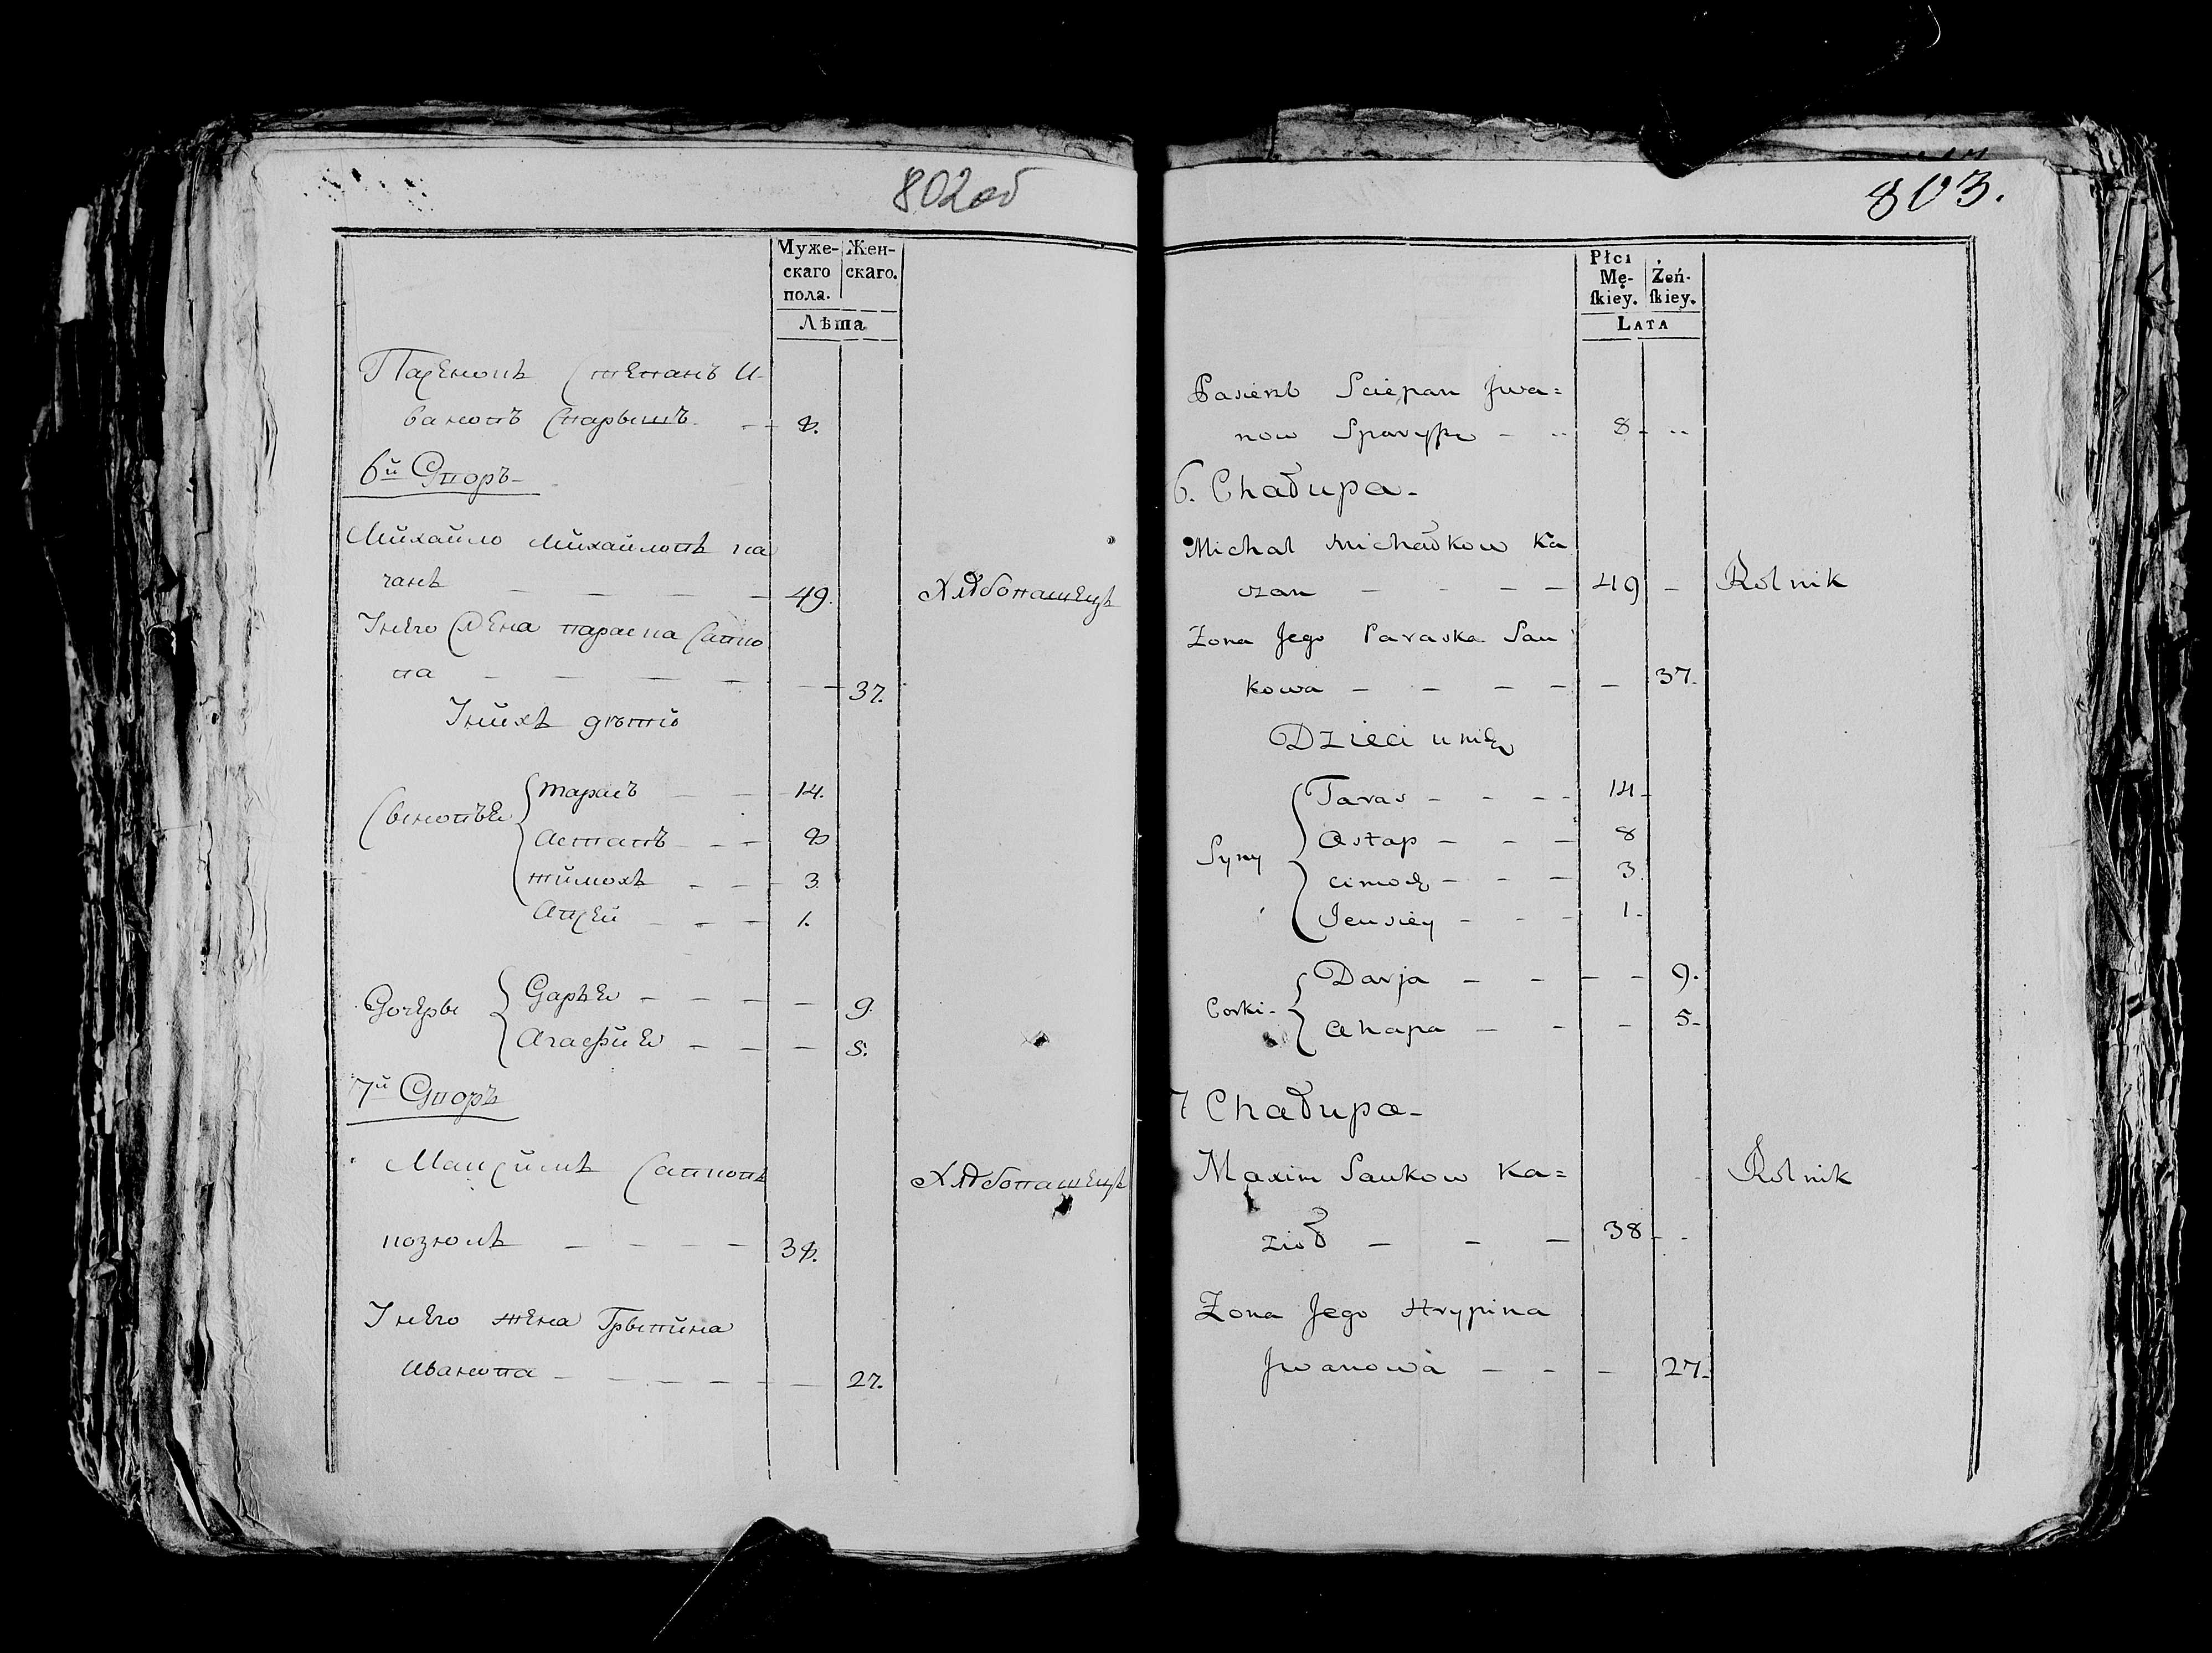 802об
Муже-
скаго
пола.
Жен-
скаго.
Лѣта
Пасенокъ Степанъ И-
вановъ Спарышъ - - 8.
6й Дворъ
Михайло Михайловъ ка
чанъ — — — — 49. Хлѣбопашецъ
У него жена параска Савко
ва — — — — — 37.
У нихъ дѣти
Сыновья
тарасъ — — 14.
Астапъ — — 8
тимохъ — — 3
Авсей — — 1.
Дочеры
Дарья — — — — 9.
Агафия — — — 5.
7й Дворъ
Максимъ Савковъ Хлѣбопашецъ
козёлъ — — — — 38.
У него жена Грыпина
Иванова — — — — — 27.
803.
Płci
Mę-
ſkiey.
Żeń-
ſkiey.
LATA
Pasierb Sciepan Jwa=
now Sparysz — 8 -
6. Chałupa -
Michał Michałkow Ka
czan — — — — 49 — Rolnik
Zona Jego Paraska Sau
kowa — — — — — 37.
Dzieci u nich
Syny
Taras — — — 14 -
Astap — — — 8
cimoch — — — 3
Jeusiey — — — 1 -
Corki -
Darja — — — — 9.
Ahapa — — — 5 -
7 Chałupa -
Maxim Saukow Ka= Rolnik
zioł — — — 38 -
Zona Jego Hrypina
Jwanowa — — — 27 -